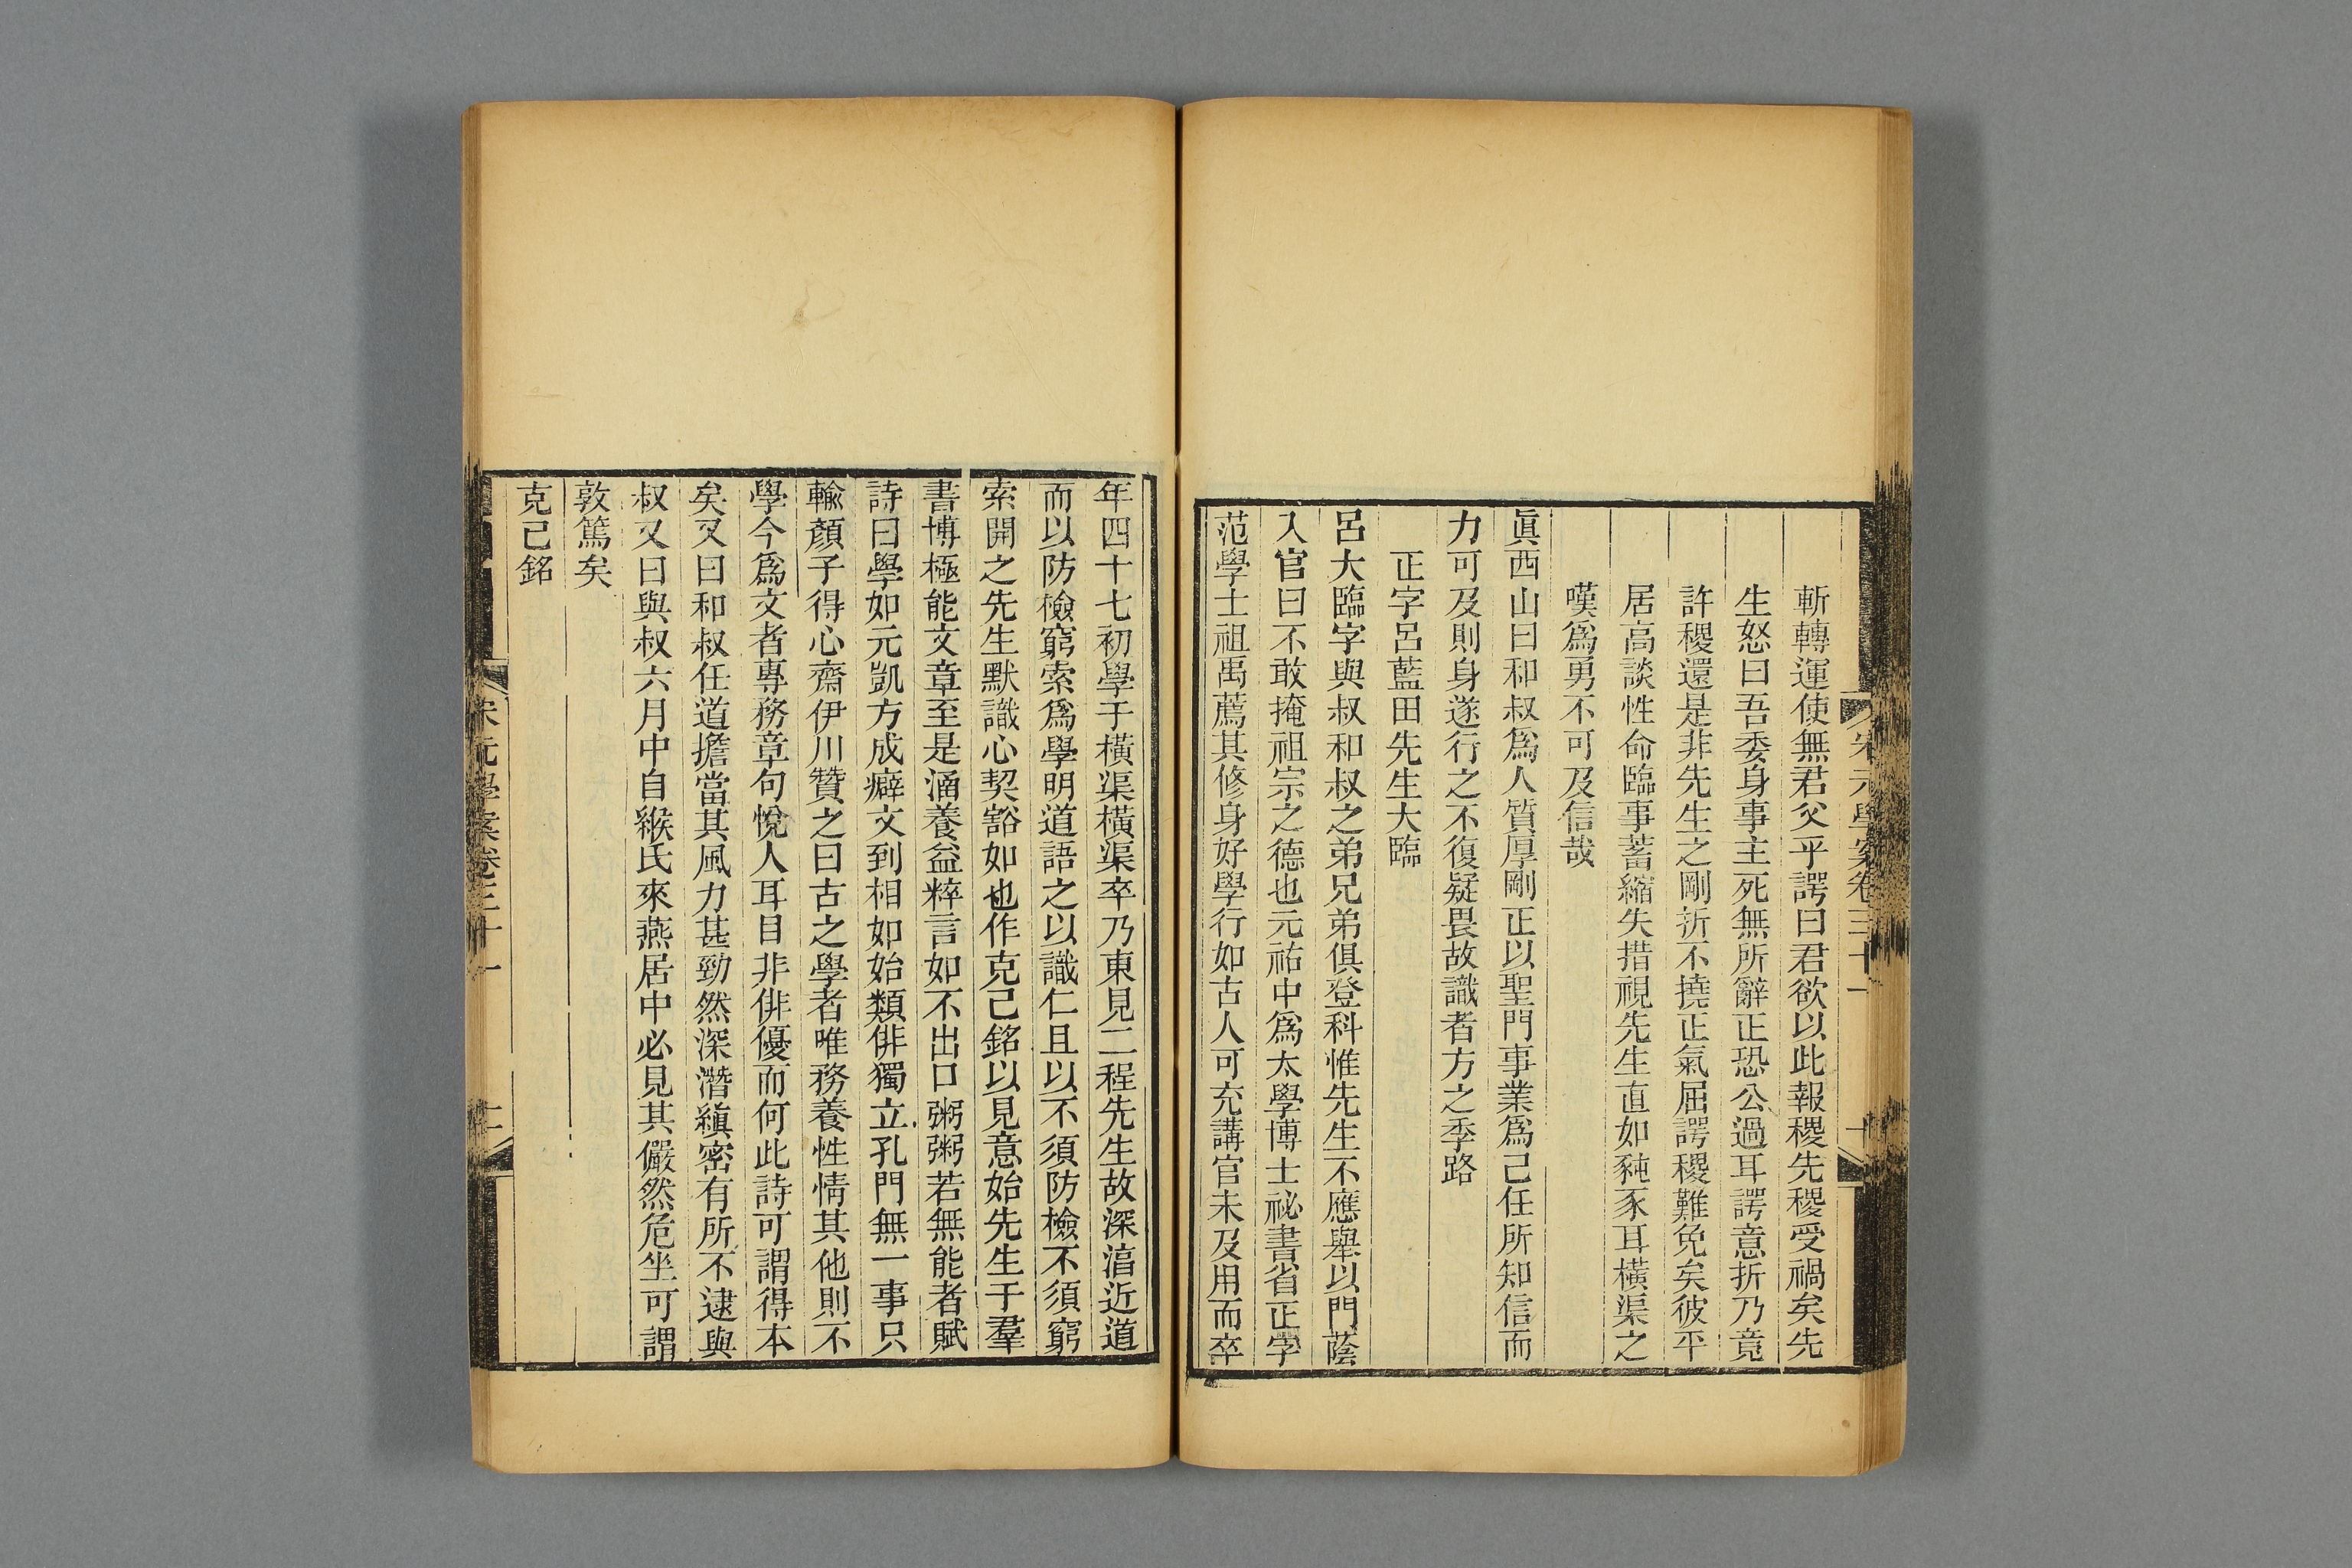 宋元學案卷三十一
十
斬轉運使無君父乎諤曰君欲以此報稷先稷受禍矣先
生怒曰吾委身事主死無所辭正恐公過耳諤意折乃竟
許稷還是非先生之剛折不撓正氣屈諤稷難免矣彼平
居高談性命臨事蓄縮失措視先生直如豘豕耳橫渠之
嘆爲勇不可及信哉
眞西山曰和叔爲人質厚剛正以聖門事業爲己任所知信而
力可及則身遂行之不復疑畏故識者方之季路
正字呂藍田先生大臨
呂大臨字與叔和叔之弟兄弟俱登科惟先生不應舉以門蔭
入官曰不敢掩祖宗之德也元祐中爲太學博士祕書省正字
范學士祖禹薦其修身好學行如古人可充講官未及用而卒
年四十七初學于橫渠橫渠卒乃東見二程先生故深湻近道
而以防檢窮索爲學明道語之以識仁且以不須防檢不須窮
索開之先生默識心契豁如也作克己銘以見意始先生于羣
書博極能文章至是涵養益粹言如不出口粥粥若無能者賦
詩曰學如元凱方成癖文到相如始類俳獨立孔門無一事只
輸顏子得心齋伊川贊之曰古之學者唯務養性情其他則不
學今爲文者專務章句悅人耳目非俳優而何此詩可謂得本
矣又曰和叔任道擔當其風力甚勁然深潛縝密有所不逮與
叔又曰與叔六月中自緱氏來燕居中必見其儼然危坐可謂
敦篤矣
克己銘
宋元學案卷三十一